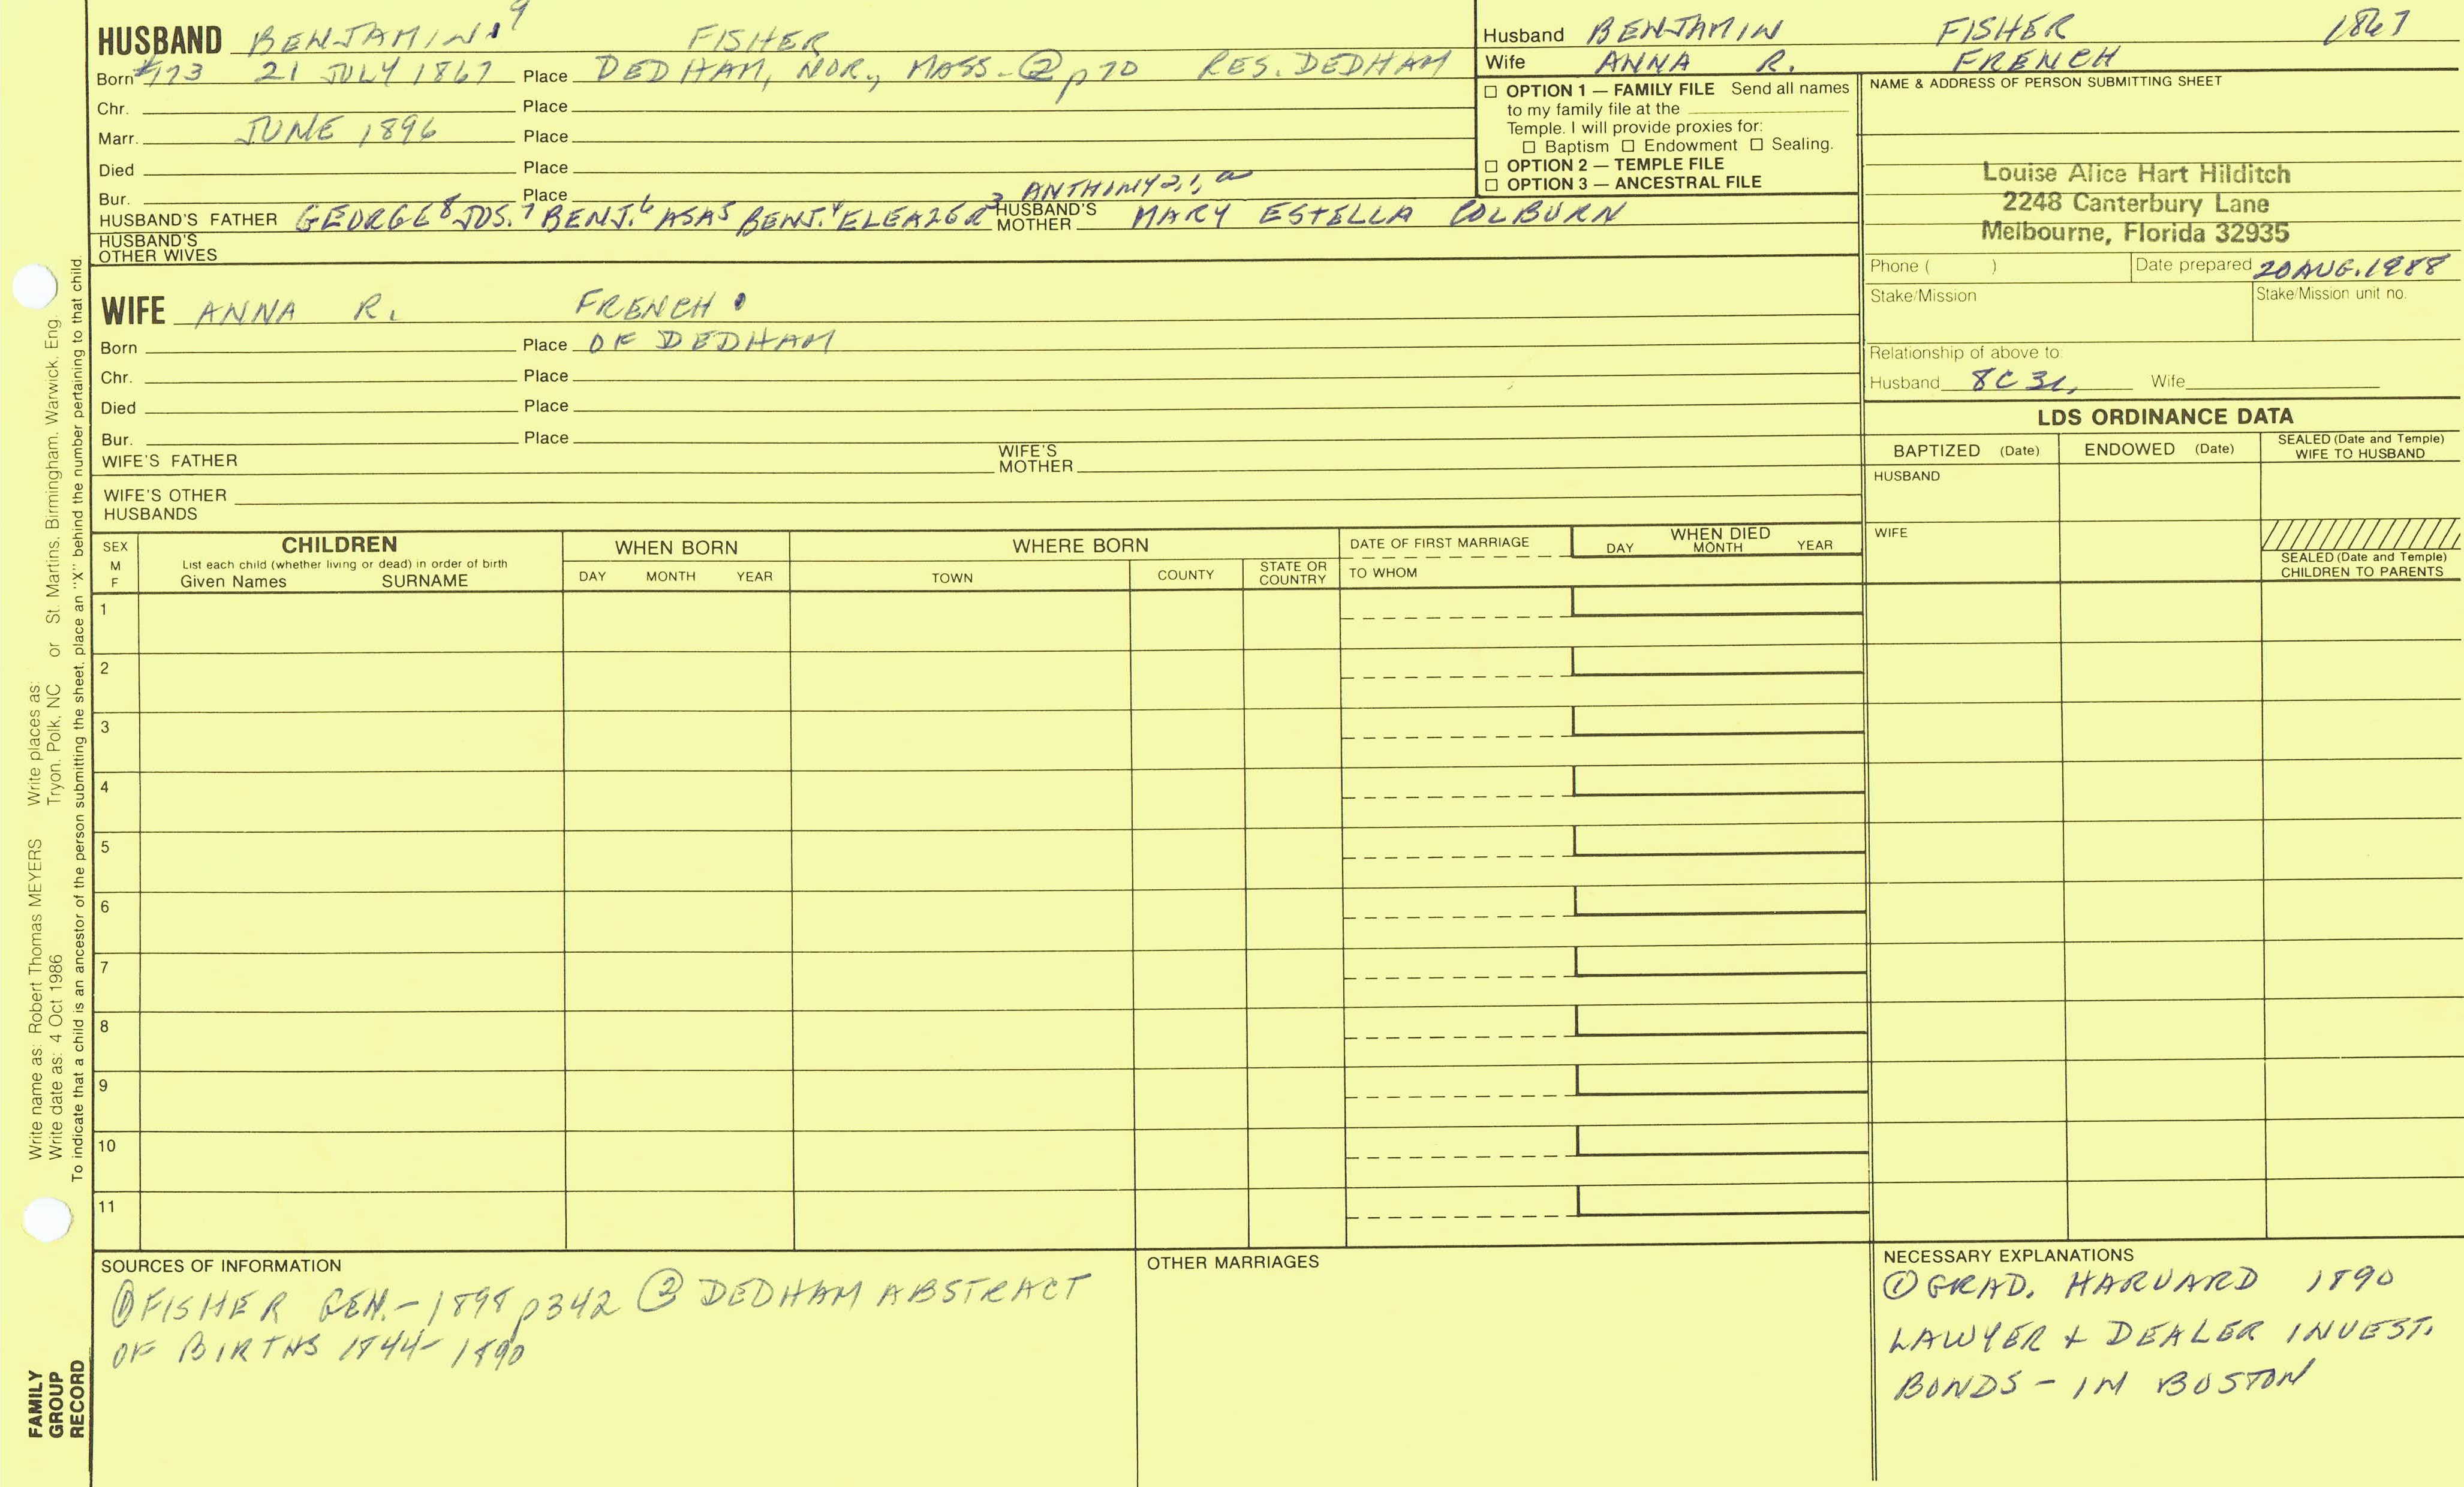 HUSBAND BENJAMIN 9 FISHER
Born #173 21 JULY 1867 Place DEDHAM, NOR., MASS. - ② p70 RES. DEDHAM
Chr. Place
Marr. JUNE 1896 Place
Died Place
Bur. Place ANTHONY 2,1,a
HUSBAND'S FATHER GEORGE 8 JOS. 7 BENJ. 6 ASA 5 BENJ. 4 ELEAZER 3 HUSBAND'S MOTHER MARY ESTELLA COLBURN
HUSBAND'S OTHER WIVES
WIFE ANNA R. FRENCH
Born Place OF DEDHAM
Chr. Place
Died Place
Bur. Place
WIFE'S FATHER WIFE'S MOTHER
WIFE'S OTHER HUSBANDS
Husband BENJAMIN FISHER 1867
Wife ANNA R. FRENCH
☐ OPTION 1 — FAMILY FILE Send all names
to my family file at the
Temple. I will provide proxies for:
☐ Baptism ☐ Endowment ☐ Sealing.
☐ OPTION 2 — TEMPLE FILE
☐ OPTION 3 — ANCESTRAL FILE
NAME & ADDRESS OF PERSON SUBMITTING SHEET
Louise Alice Hart Hilditch
2248 Canterbury Lane
Melbourne, Florida 32935
Phone ( ) Date prepared 20 AUG. 1988
Stake/Mission Stake/Mission unit no.
Relationship of above to:
Husband 8C 3r, Wife
LDS ORDINANCE DATA
BAPTIZED (Date) ENDOWED (Date) SEALED (Date and Temple) WIFE TO HUSBAND
HUSBAND
WIFE
SEALED (Date and Temple) CHILDREN TO PARENTS
SEX M F
CHILDREN
List each child (whether living or dead) in order of birth
Given Names SURNAME
WHEN BORN
DAY MONTH YEAR
WHERE BORN
TOWN COUNTY STATE OR COUNTRY
DATE OF FIRST MARRIAGE
TO WHOM
WHEN DIED
DAY MONTH YEAR
1
2
3
4
5
6
7
8
9
10
11
SOURCES OF INFORMATION
① FISHER GEN. - 1898 p342 ② DEDHAM ABSTRACT
OF BIRTHS 1844-1890
OTHER MARRIAGES
NECESSARY EXPLANATIONS
① GRAD. HARVARD 1890
LAWYER + DEALER INVEST.
BONDS - IN BOSTON
Write name as: Robert Thomas MEYERS Write places as:
Write date as: 4 Oct 1986 Tryon, Polk, NC or St. Martins, Birmingham, Warwick, Eng.
To indicate that a child is an ancestor of the person submitting the sheet, place an "X" behind the number pertaining to that child.
FAMILY
GROUP
RECORD